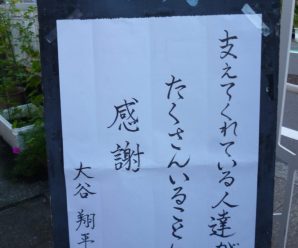 支えてくれている人達が
たくさんいること
感謝
大谷 翔平